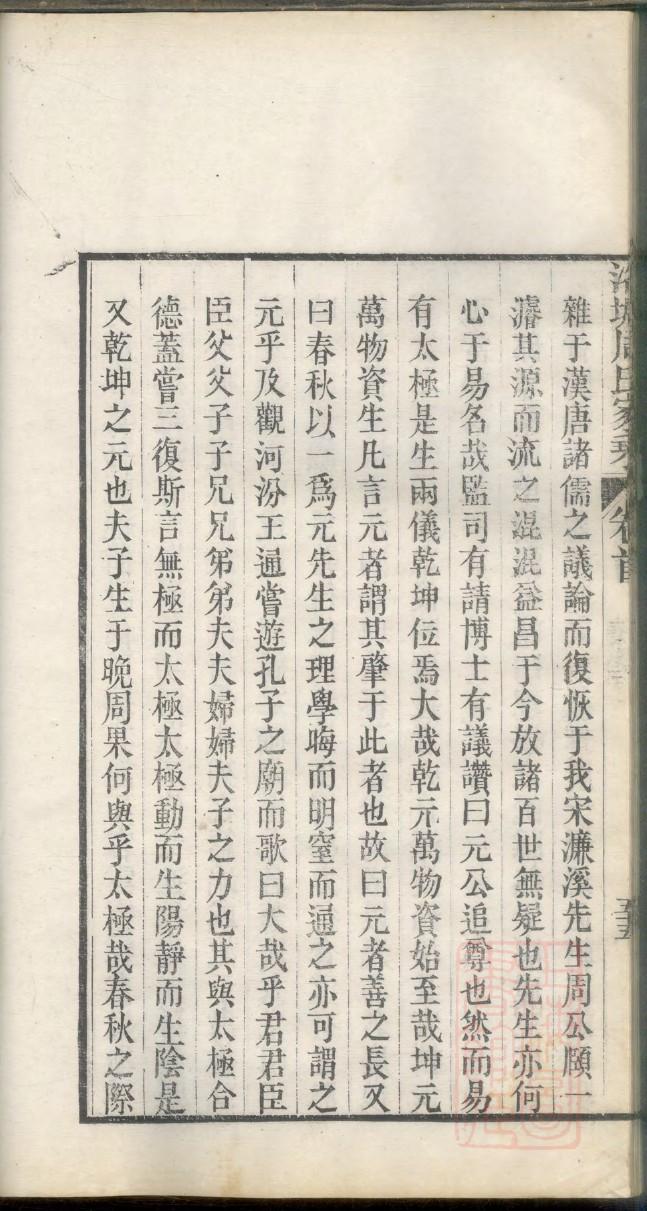 周氏家乘 卷首
五
雜于漢唐諸儒之議論而復恢于我宋濂溪先生周公願一
濬其源而流之混混益昌于今放諸百世無疑也先生亦何
心于易名哉監司有請博士有議讚曰元公追尊也然而易
有太極是生兩儀乾坤位焉大哉乾元萬物資始至哉坤元
萬物資生凡言元者謂其肇于此者也故曰元者善之長又
曰春秋以一爲元先生之理學晦而明窒而通之亦可謂之
元乎及觀河汾王通嘗遊孔子之廟而歌曰大哉乎君君臣
臣父父子子兄兄弟弟夫夫婦婦夫子之力也其與太極合
德蓋嘗三復斯言無極而太極太極動而生陽靜而生陰是
又乾坤之元也夫子生于晚周果何與乎太極哉春秋之際